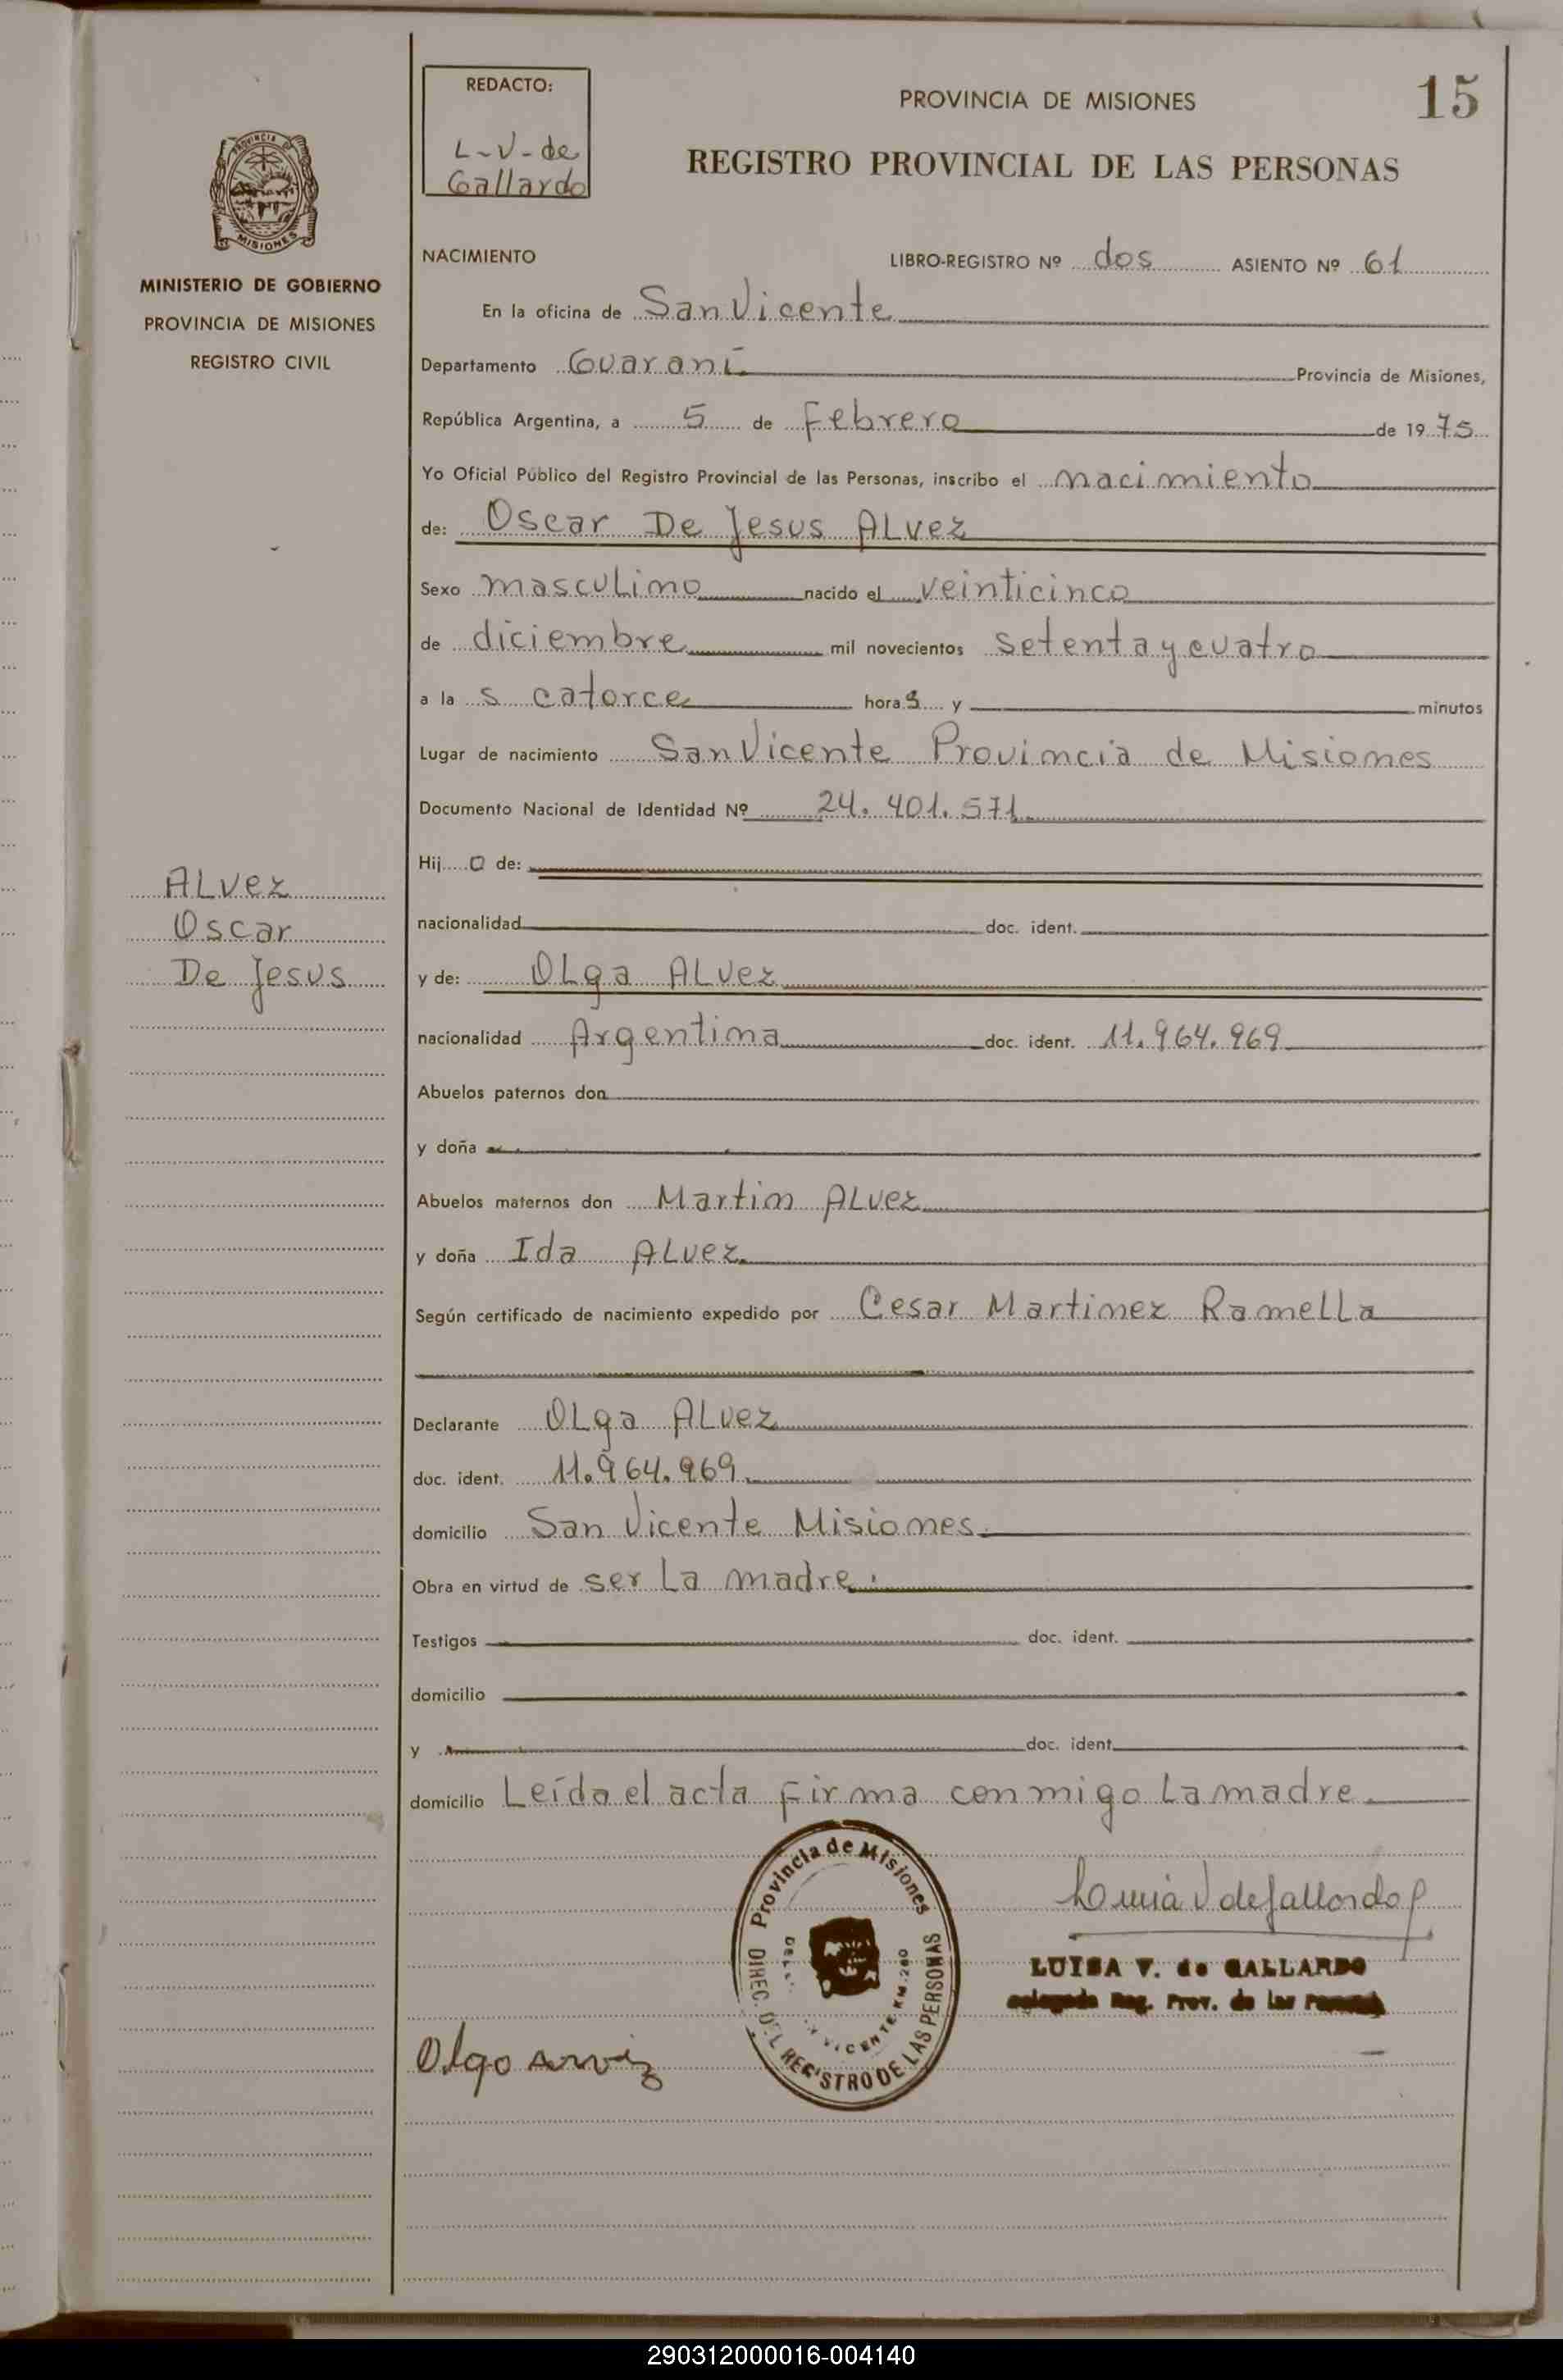 REDACTO:
L-V-de
Gallardo
PROVINCIA DE MISIONES
15
REGISTRO PROVINCIAL DE LAS PERSONAS
PROVINCIA DE
MISIONES
MINISTERIO DE GOBIERNO
PROVINCIA DE MISIONES
REGISTRO CIVIL
NACIMIENTO
LIBRO-REGISTRO Nº dos ASIENTO Nº 61
En la oficina de San Vicente
Departamento Guaraní Provincia de Misiones,
República Argentina, a 5 de Febrero de 1975
Yo Oficial Público del Registro Provincial de las Personas, inscribo el nacimiento
de: Oscar De Jesus ALvez
Sexo mascuLino nacido el veinticinco
de diciembre mil novecientos setenta y cuatro
a la s catorce horas y minutos
Lugar de nacimiento San Vicente Provincia de Misiones
Documento Nacional de Identidad Nº 24.401.571
Hij o de:
nacionalidad doc. ident.
ALvez
Oscar
De Jesus
y de: OLga ALvez
nacionalidad Argentina doc. ident. 11.964.969
Abuelos paternos don
y doña
Abuelos maternos don Martin ALvez
y doña Ida ALvez
Según certificado de nacimiento expedido por Cesar Martinez RameLLa
Declarante OLga ALvez
doc. ident. 11.964.969
domicilio San Vicente Misiones
Obra en virtud de ser La madre.
Testigos doc. ident.
domicilio
y doc. ident.
domicilio Leída el acta Firma conmigo La madre
Provincia de Misiones
DIREC. DEL REGISTRO DE LAS PERSONAS
VICENTE KM. 260
LUISA V. de GALLARDO
Reg. Prov. de las
Olga
290312000016-004140